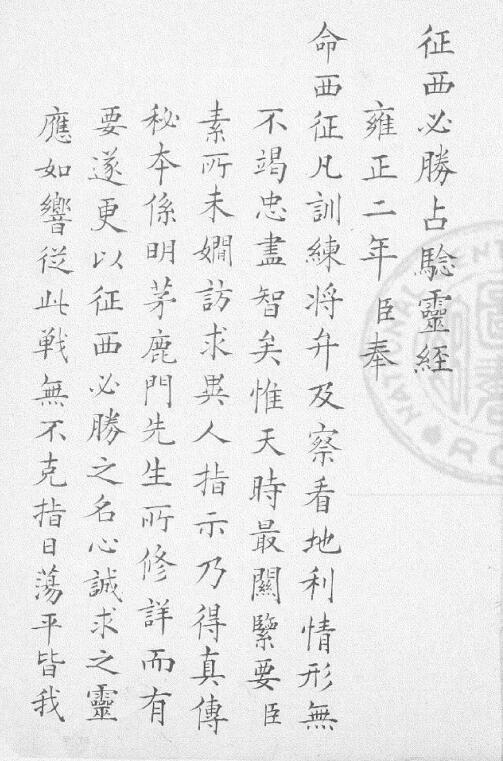 征西必勝占騐靈経
雍正二年臣奉
命西征凡訓練将弁及察看地利情形無
不竭忠盡智矣惟天時最關緊要臣
素所未嫺訪求異人指示乃得真傳
秘本係明茅鹿門先生所修詳而有
要遂更以征西必勝之名心誠求之靈
應如響從此戦無不克指日蕩平皆我
NATIONAL CEN
RO